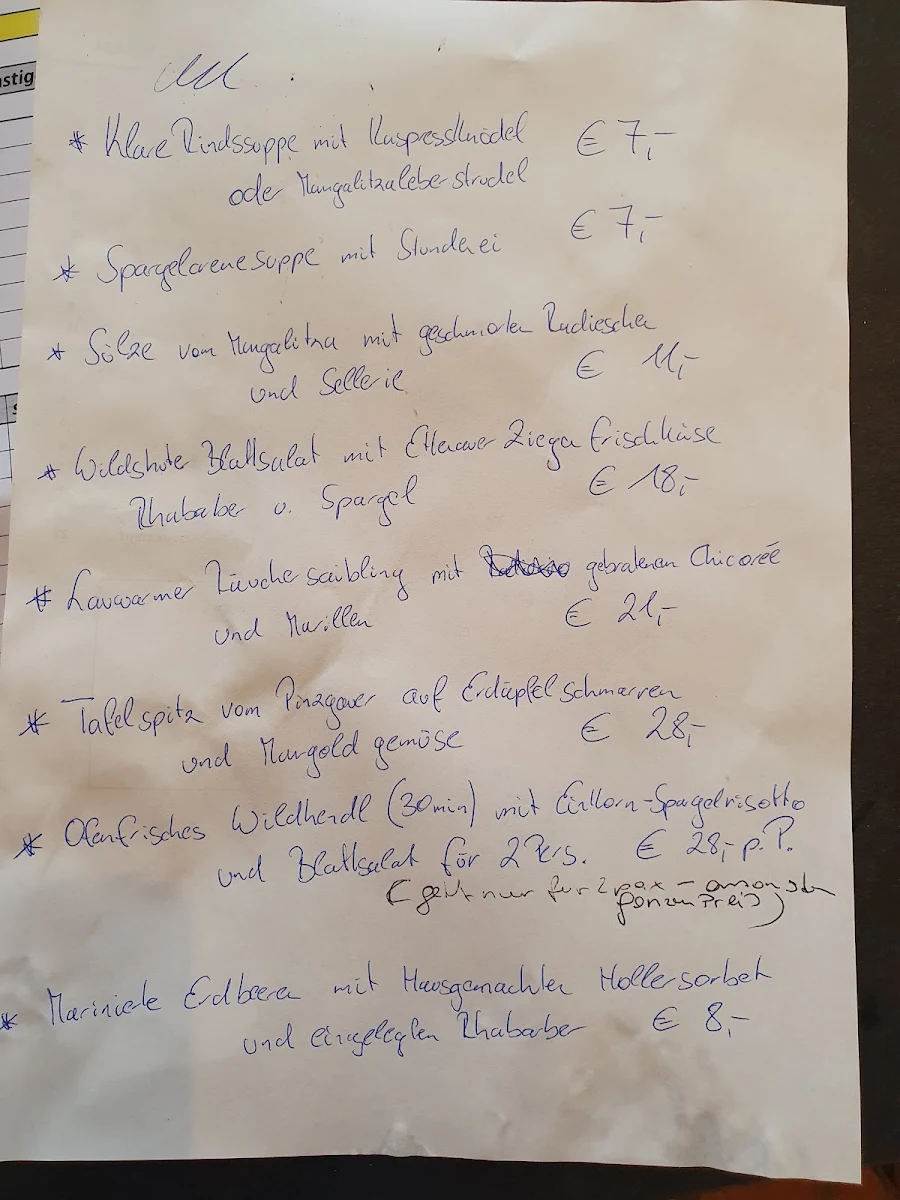 nstig
* Klare Rindssuppe mit Kaspressknödel € 7,-
oder Mangalitzaleberstrudel
* Spargelcremesuppe mit Stundenei € 7,-
* Sülze vom Mangalitza mit geschmorten Radieschen
und Sellerie € 11,-
* Wildkräuter Blattsalat mit Ziegenfrischkäse
Rhabarber u. Spargel € 18,-
* Lauwarmer Räuchersaibling mit gebratenen Chicorée
und Marillen € 21,-
* Tafelspitz vom Pinzgauer auf Erdäpfelschmarren
und Mangoldgemüse € 28,-
* Ofenfrisches Wildhendl (30min) mit Einkorn-Spargelrisotto
und Blattsalat für 2 Pers. € 28,- p.P.
(geht nur für 2 pax -
ganzen Preis)
* Marinierte Erdbeeren mit Hausgemachten Hollersorbet
und eingelegten Rhabarber € 8,-